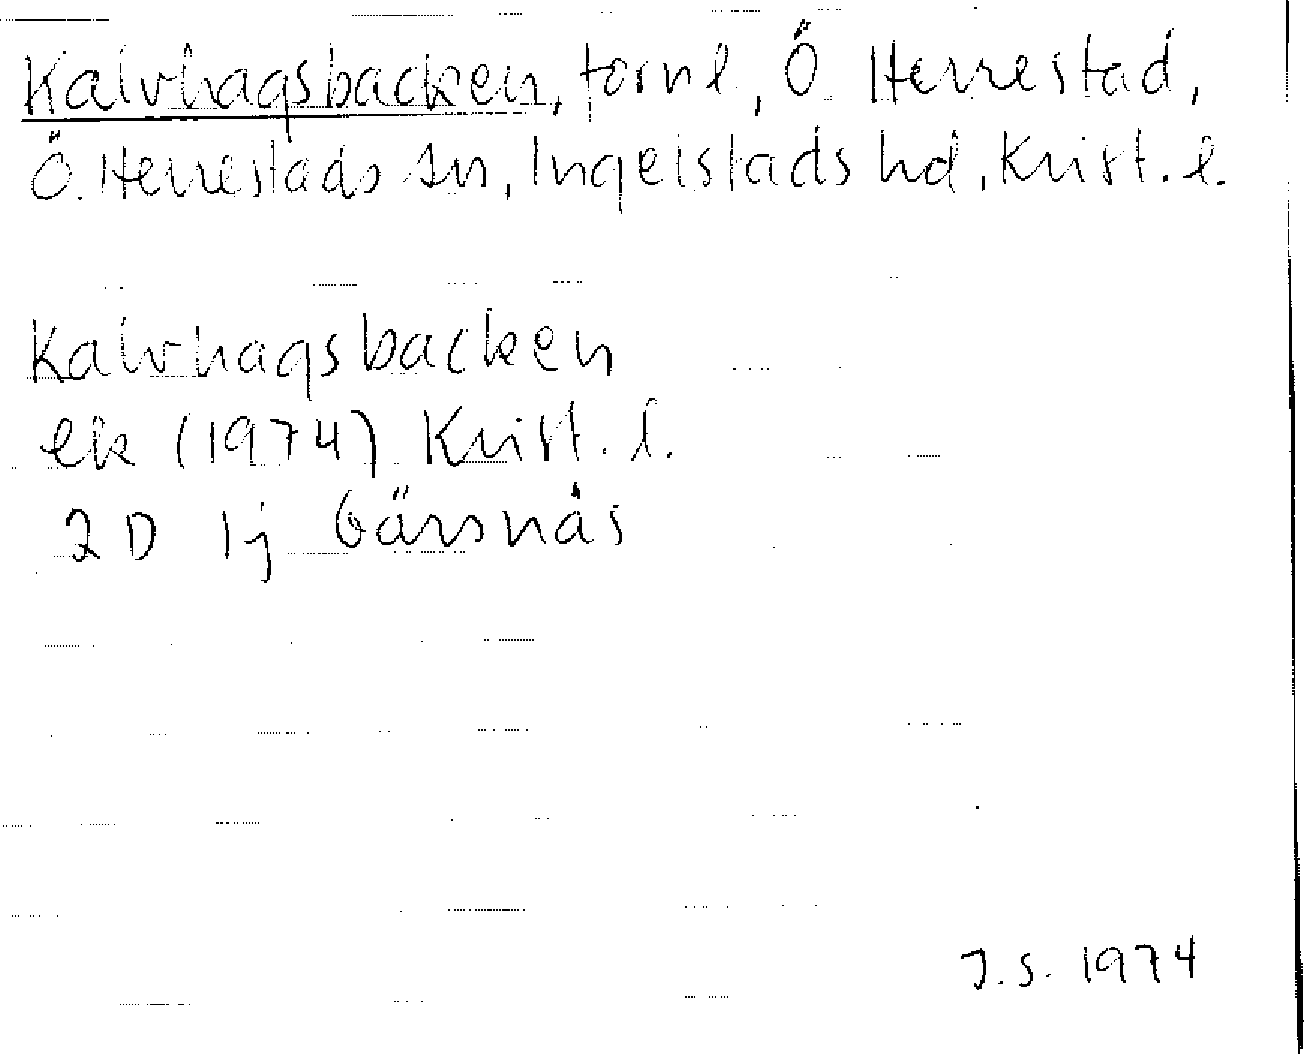 Kalvhagsbacken, fornl, Ö. Herrestad,
Ö. Herrestads sn, Ingelstads hd, Krist. l.
Kalvhagsbacken
ek (1974) Krist. l.
2D 1j Gärsnäs
J.S. 1974